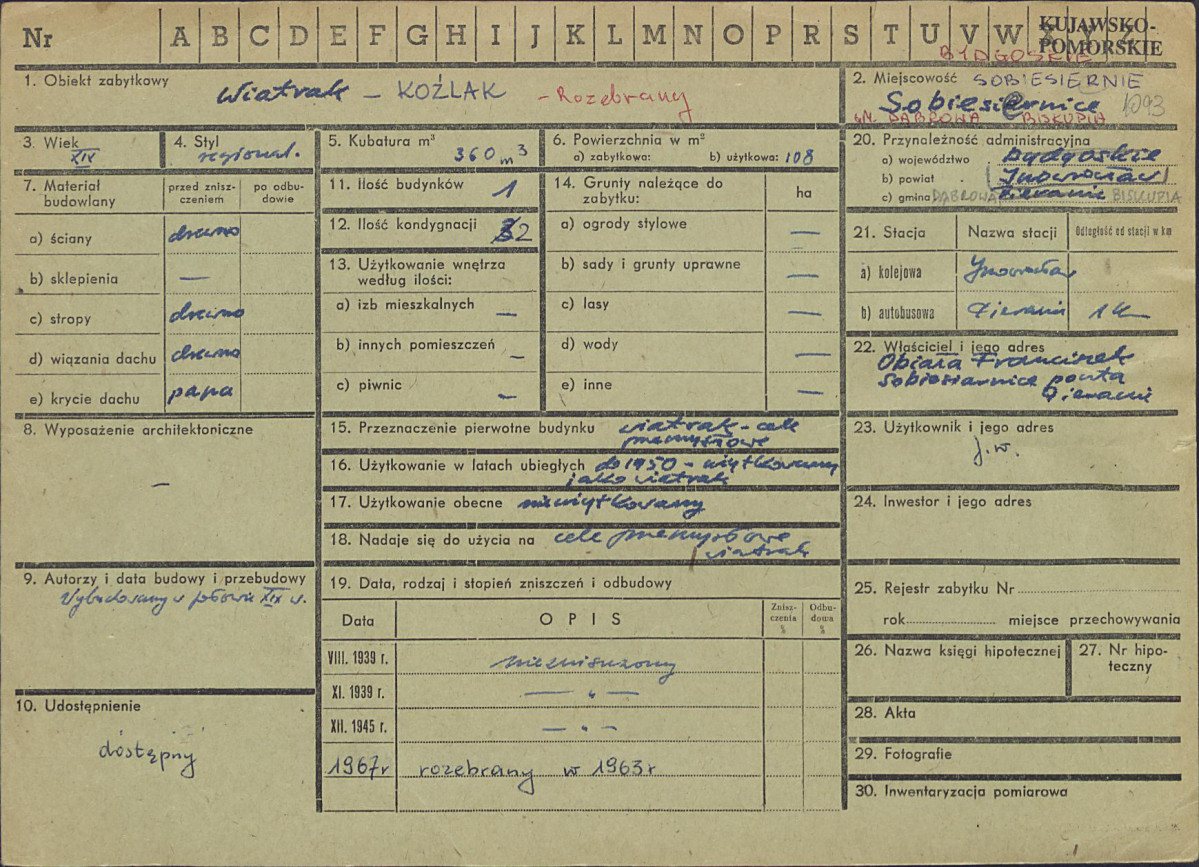 Nr A B C D E F G H I J K L M N O P R S T U V W
KUJAWSKO-
POMORSKIE
BYDGOSKIE
1. Obiekt zabytkowy
Wiatrak – KOŹLAK – Rozebrany
2. Miejscowość SOBIESIERNIE
Sobiesiernice 1093
GM. DĄBROWA BISKUPIA
3. Wiek
XIX
4. Styl
regional.
5. Kubatura m³
360 m³
6. Powierzchnia w m²
a) zabytkowa: b) użytkowa: 108
7. Materiał
budowlany
przed znisz-
czeniem
po odbu-
dowie
a) ściany drewno
b) sklepienia —
c) stropy drewno
d) wiązania dachu drewno
e) krycie dachu papa
8. Wyposażenie architektoniczne
—
9. Autorzy i data budowy i przebudowy
Wybudowany w połowie XIX w.
10. Udostępnienie
dostępny
11. Ilość budynków 1
12. Ilość kondygnacji 2
13. Użytkowanie wnętrza
według ilości:
a) izb mieszkalnych —
b) innych pomieszczeń —
c) piwnic —
14. Grunty należące do
zabytku:
ha
a) ogrody stylowe —
b) sady i grunty uprawne —
c) lasy —
d) wody —
e) inne —
15. Przeznaczenie pierwotne budynku wiatrak – cele
przemysłowe
16. Użytkowanie w latach ubiegłych do 1950 – użytkowany
jako wiatrak
17. Użytkowanie obecne nieużytkowany
18. Nadaje się do użycia na cele przemysłowe
wiatrak
19. Data, rodzaj i stopień zniszczeń i odbudowy
Data OPIS
Znisz-
czenia
%
Odbu-
dowa
%
VIII. 1939 r. niezniszczony
XI. 1939 r. — „ —
XII. 1945 r. — „ —
1967 r rozebrany w 1963 r
20. Przynależność administracyjna
a) województwo Bydgoskie
b) powiat (Inowrocław)
c) gmina DĄBROWA Pieranie BISKUPIA
21. Stacja Nazwa stacji Odległość od stacji w km
a) kolejowa Inowrocław
b) autobusowa Pieranie 1 k
22. Właściciel i jego adres
Obiała Franciszek
Sobiesiernice poczta
Pieranie
23. Użytkownik i jego adres
j.w.
24. Inwestor i jego adres
25. Rejestr zabytku Nr
rok miejsce przechowywania
26. Nazwa księgi hipotecznej
27. Nr hipo-
teczny
28. Akta
29. Fotografie
30. Inwentaryzacja pomiarowa